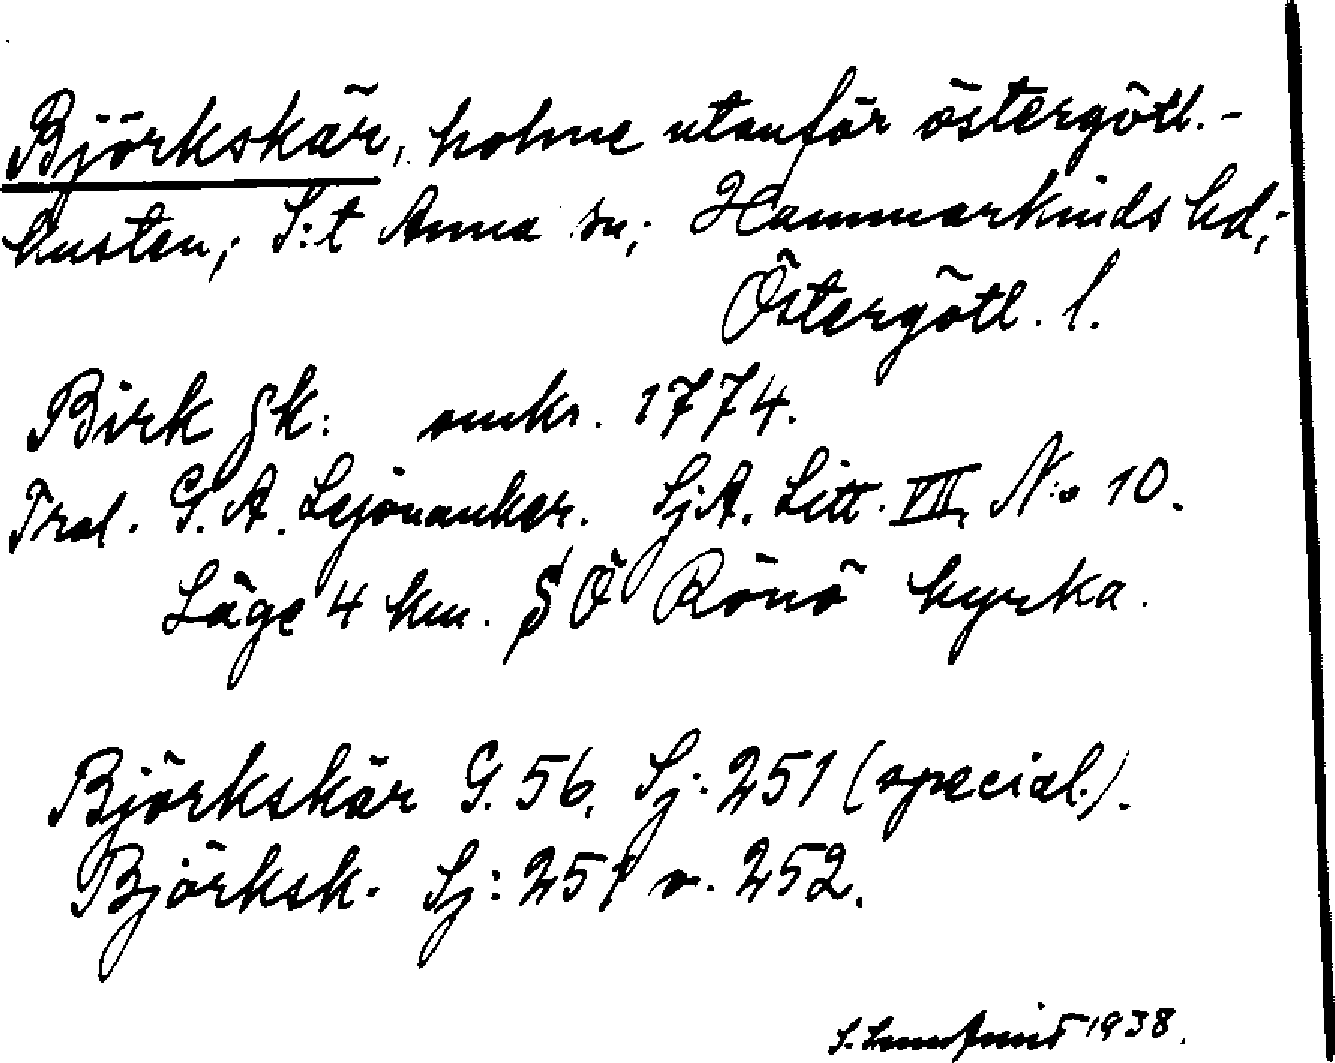 Björkskär, holme utanför östergötl.-
kusten; S:t Anna sn; Hammarkinds hd;
Östergötl. l.
Birk Sk: omkr. 1774.
G. A. Lejonanker. SjA. Litt. VII, N:o 10.
Läge 4 km. SÖ Rönö kyrka.
Björkskär G. 56. Sj: 251 (special.).
Björksk. Sj: 251 o. 252.
1938.